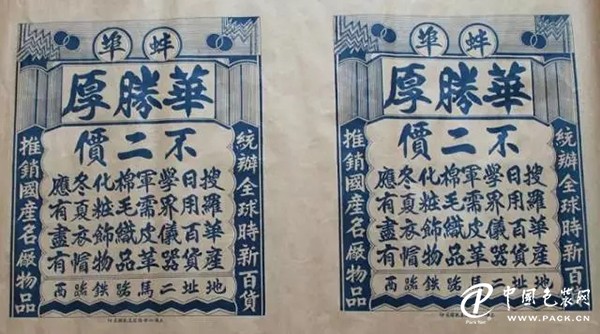 蚌埠
華勝厚
不二價
統辦全球時新百貨
搜羅華産
日用百貨
學界儀器
軍需皮革
棉毛織品
化粧飾物
冬夏衣帽
應有盡有
推銷國産名廠物品
地址二馬路鐵路西
蚌埠
華勝厚
不二價
統辦全球時新百貨
搜羅華産
日用百貨
學界儀器
軍需皮革
棉毛織品
化粧飾物
冬夏衣帽
應有盡有
推銷國産名廠物品
地址二馬路鐵路西
中国包装网
WWW.PACK.CN